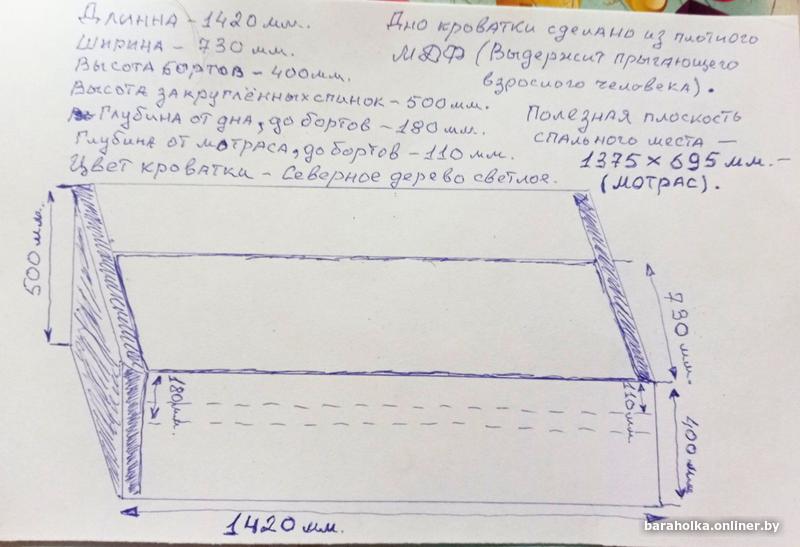 Длинна - 1420 мм.
Ширина - 730 мм.
Высота бортов - 400мм.
Высота закруглённых спинок - 500 мм.
Глубина от дна, до бортов - 180 мм.
Глубина от мотраса, до бортов - 110 мм.
Цвет кроватки - Северное дерево светлое.
Дно кроватки сделано из плотного
МДФ (Выдержит прыгающего
взрослого человека).
Полезная плоскость
спального места —
1375 x 695 мм. -
(мотрас).
500 мм.
730 мм.
180мм.
110 мм
400 мм
1420 мм.
baraholka.onliner.by